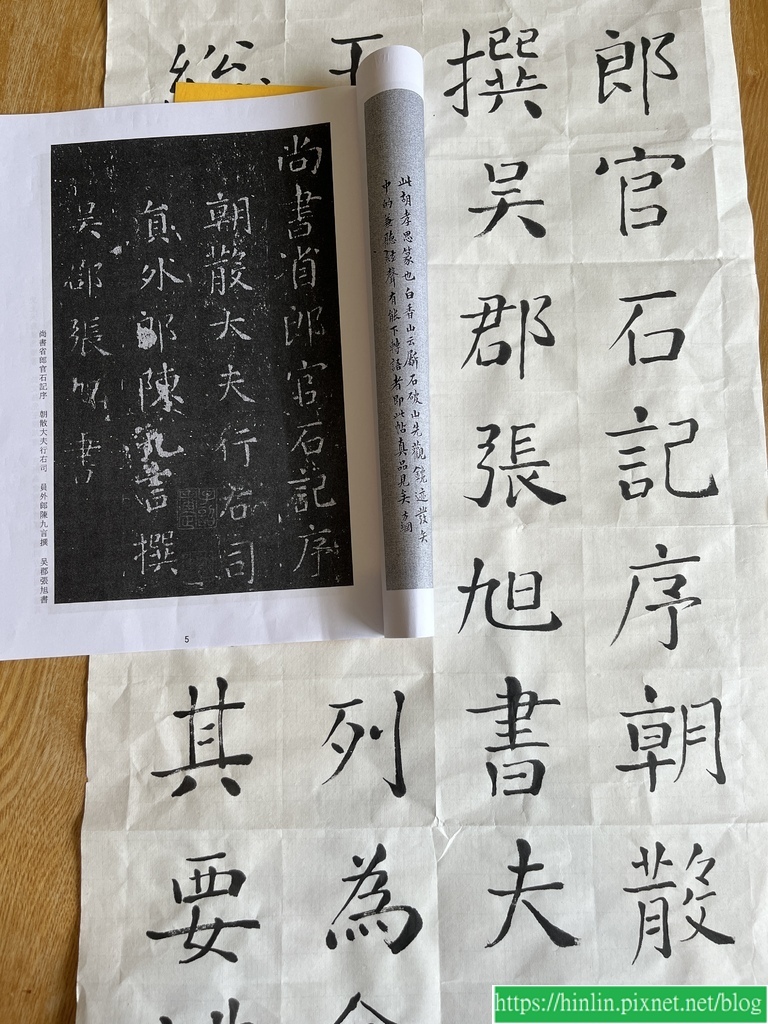 郎官石記序朝散
撰吳郡張旭書夫
列為
總其要
此胡孝思篆也白香山云斷石破山先觀鏡迹發矢
中的兼聽弦聲有能下轉語者即此帖真品見矣
尚書省郎官石記序
朝散大夫行右司
員外郎陳九言撰
吳郡張旭書
尚書省郎官石記序　朝散大夫行右司　員外郎陳九言撰　吳郡張旭書
5
https://hinlin.pixnet.net/blog